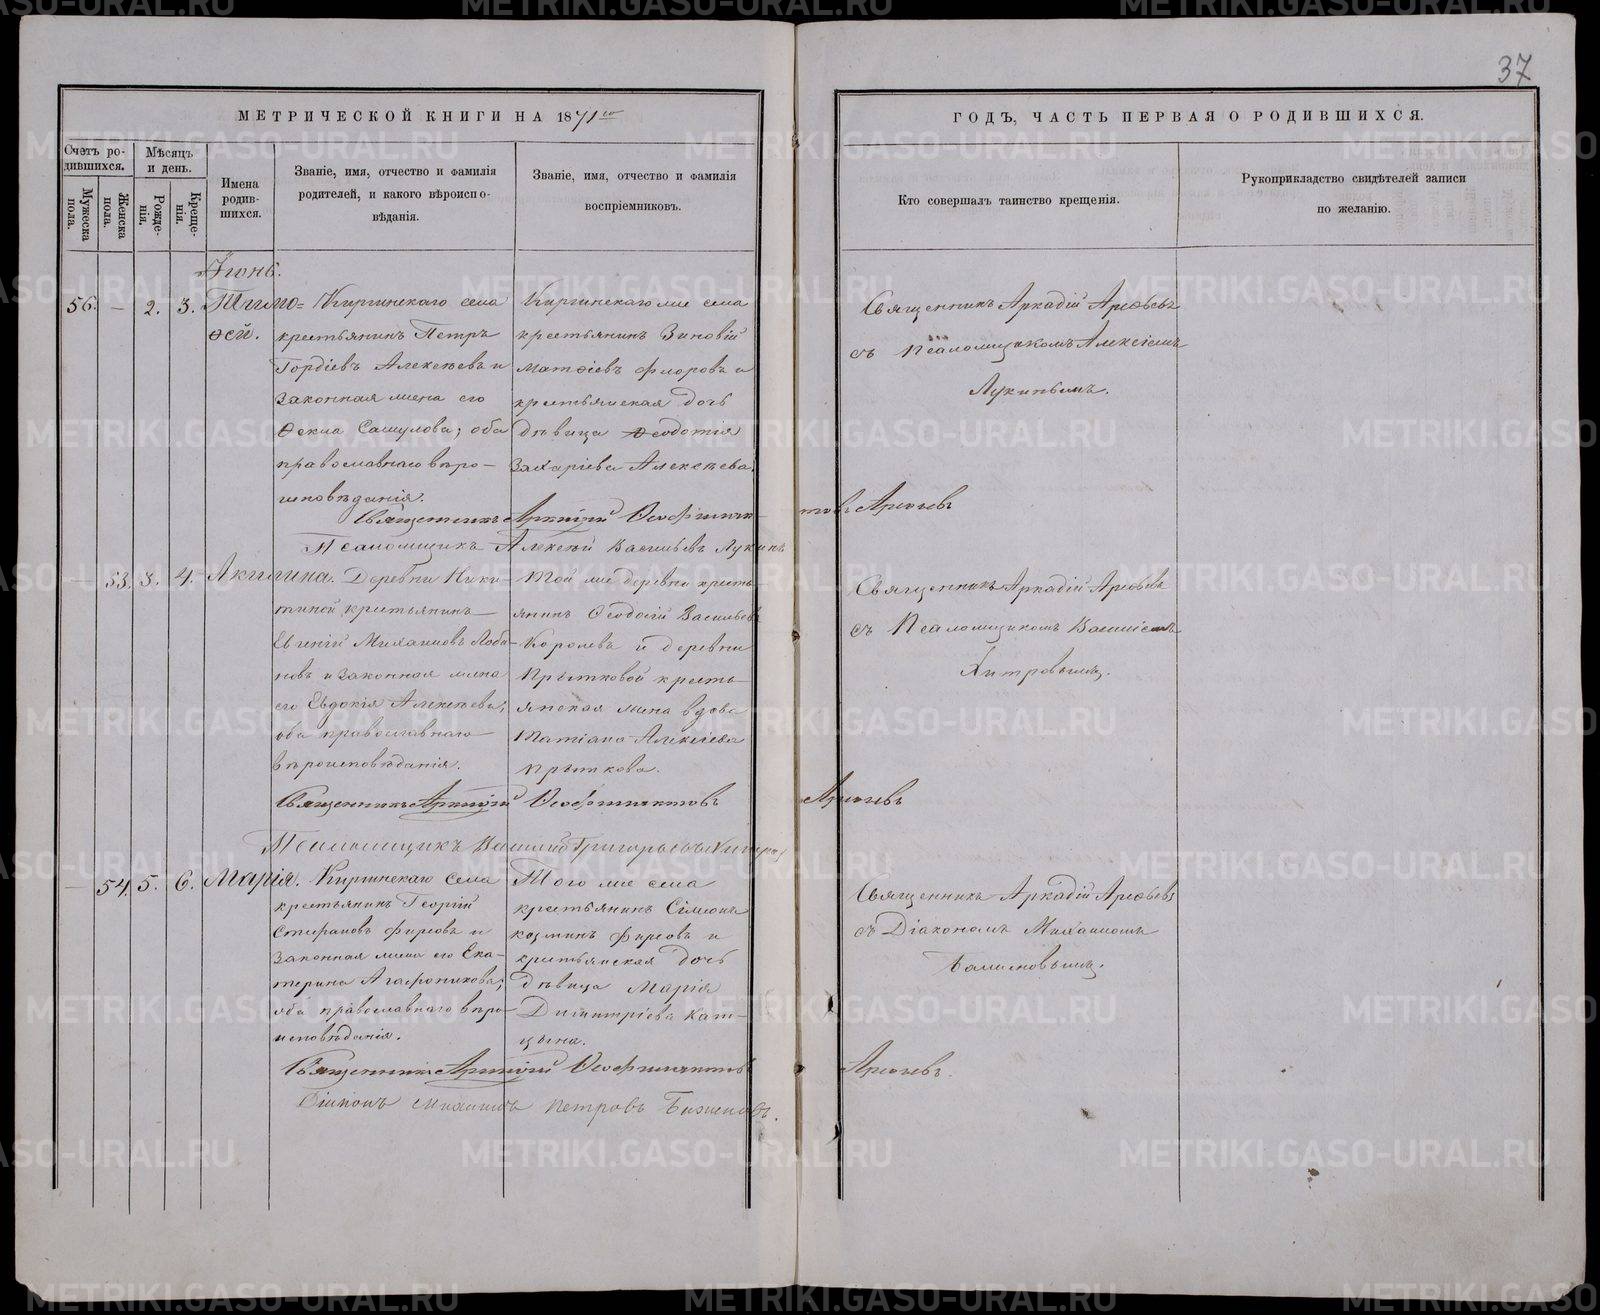 37
МЕТРИЧЕСКОЙ КНИГИ НА 1871го
ГОДЪ, ЧАСТЬ ПЕРВАЯ О РОДИВШИХСЯ.
Счетъ ро-
дившихся.
Мужеска
пола.
Женска
пола.
Мѣсяцъ
и день.
Рожде-
нія.
Креще-
нія.
Имена
родив-
шихся.
Званіе, имя, отчество и фамилія
родителей, и какого вѣроиспо-
вѣданія.
Званіе, имя, отчество и фамилія
воспріемниковъ.
Кто совершалъ таинство крещенія.
Рукоприкладство свидѣтелей записи
по желанію.
Іюнь.
56. — 2. 3. Тимо-
ѳей.
Киргинскаго села
крестьянинъ Петръ
Гордіевъ Алексѣевъ и
законная жена его
Ѳекла Самулова; оба
православнаго вѣро-
исповѣданія.
Киргинскаго же села
крестьянинъ Зиновій
Матѳіевъ Флоровъ и
крестьянская дочь
дѣвица Ѳеодотія
Захаріева Алексѣева.
Священникъ Аркадій Арефьевъ
съ Псаломщикомъ Алексіемъ
Лукинымъ.
Священникъ Аркадій Арефьевъ
Псаломщикъ Алексѣй Васильевъ Лукинъ
— 53. 3. 4. Акилина.
Деревни Ники-
тиной крестьянинъ
Евгеній Михаиловъ Лоба-
новъ и законная жена
его Евдокія Алексѣева;
оба православнаго
вѣроисповѣданія.
Той же деревни кресть-
янинъ Ѳеодосій Васильевъ
Королевъ и деревни
Прытковой кресть-
янская жена вдова
Татіана Алексіева
Прыткова.
Священникъ Аркадій Арефьевъ
съ Псаломщикомъ Василіемъ
Хитровымъ.
Священникъ Аркадій
Псаломщикъ Василій Григорьевъ Хитровъ
— 54. 5. 6. Марія.
Киргинскаго села
крестьянинъ Георгій
Стефановъ Фирсовъ и
законная жена его Ека-
терина Агафоникова;
оба православнаго вѣро-
исповѣданія.
Того же села
крестьянинъ Сімеонъ
Козминъ Фирсовъ и
крестьянская дочь
дѣвица Марія
Димитріева Кат-
цына.
Священникъ Аркадій Арефьевъ
съ Діакономъ Михаиломъ
Священникъ Аркадій
Діаконъ Михаилъ Петровъ
METRIKI.GASO-URAL.RU